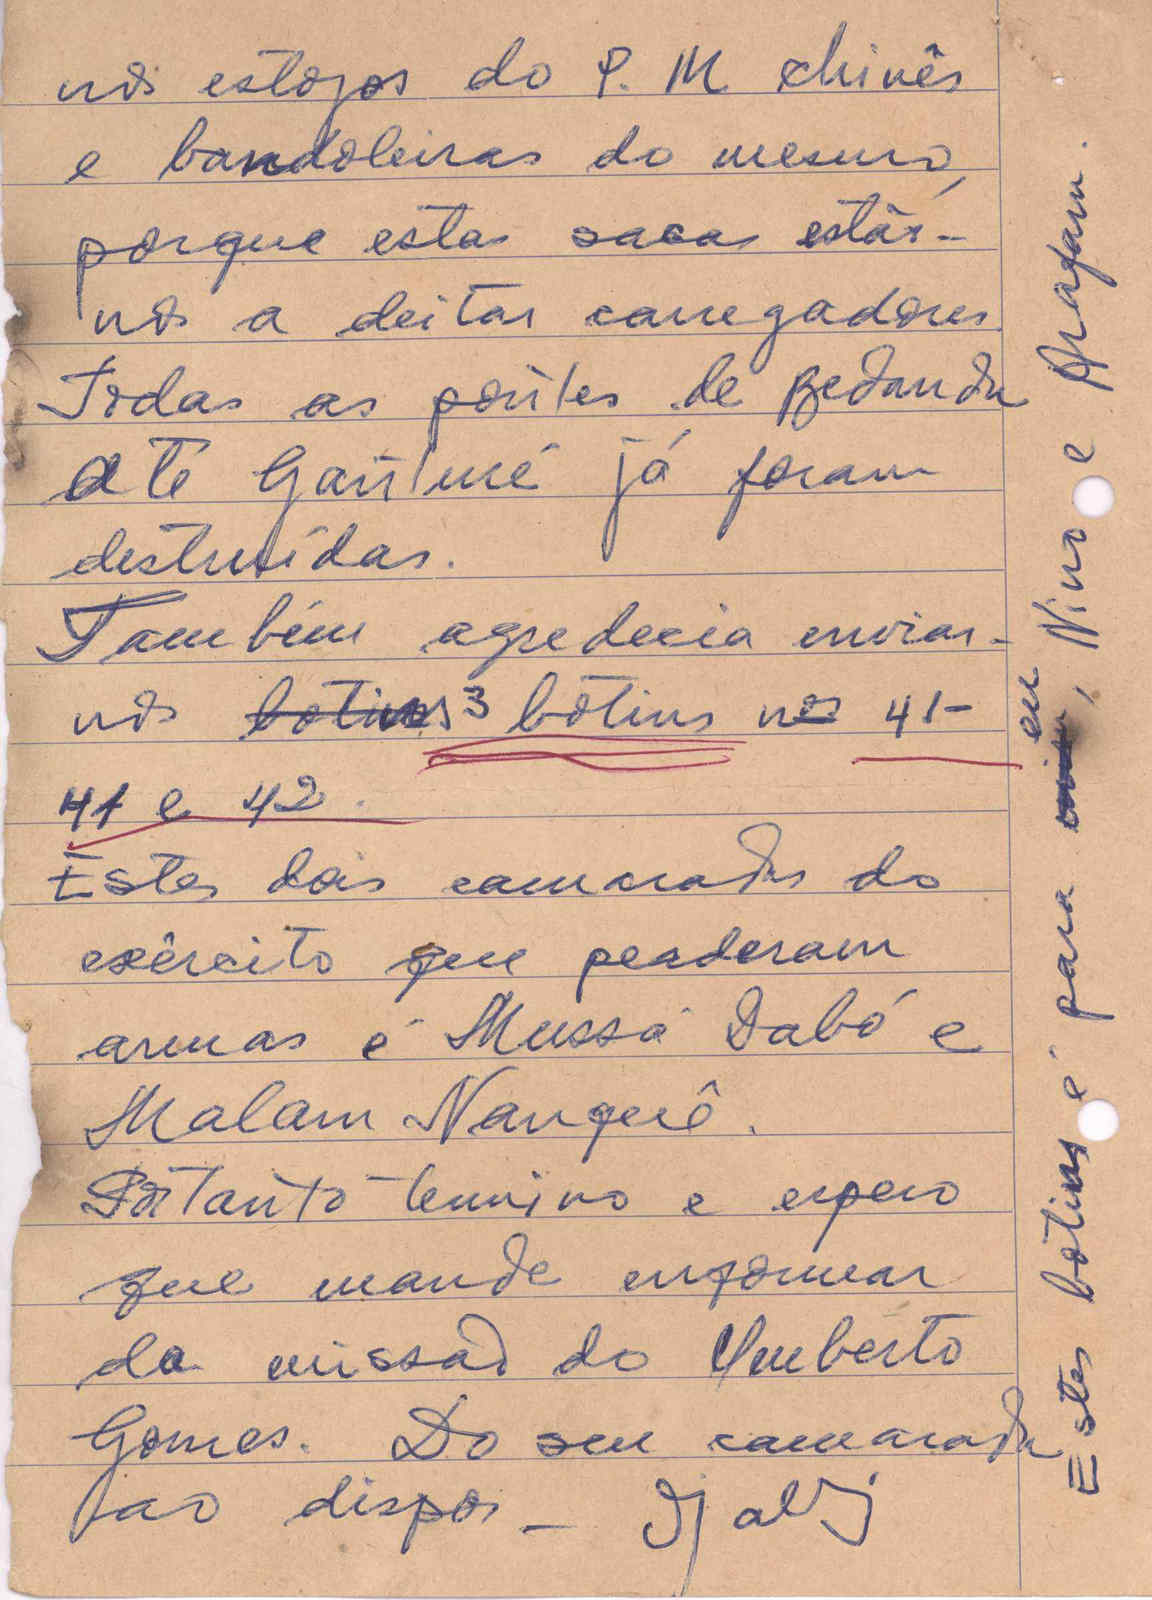 nos estojos do P. M chinês
e bandoleiras do mesmo,
porque estas sacas estás-
nos a deitar carregadores.
Todas as pontes de Bedanda
até Ganturé já foram
destruídas.
Também agredecia enviar-
nos botins 3 botins nos 41-
41 e 42.
Estes dois camaradas do
exército que perderam
armas é Mussá Dabó e
Malam Nanquê.
Portanto termino e espero
que mande enformar
da missão do Umberto
Gomes. Do seu camarada
ao dispor - Djaló
Estes botins é para eu, Nino e Aragam.